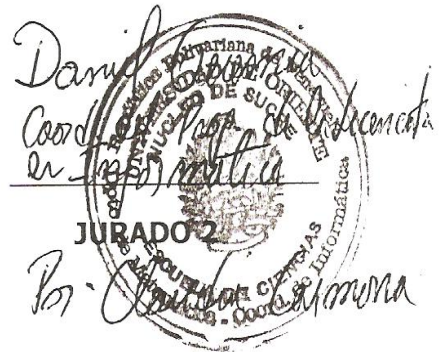 Daniel
Coord. Prog. de Licenciatura
en Informática
JURADO 2
Por: Claudia Carmona
República Bolivariana de Venezuela
UNIVERSIDAD DE ORIENTE
NÚCLEO DE SUCRE
ESCUELA DE CIENCIAS
Coord. de Informática